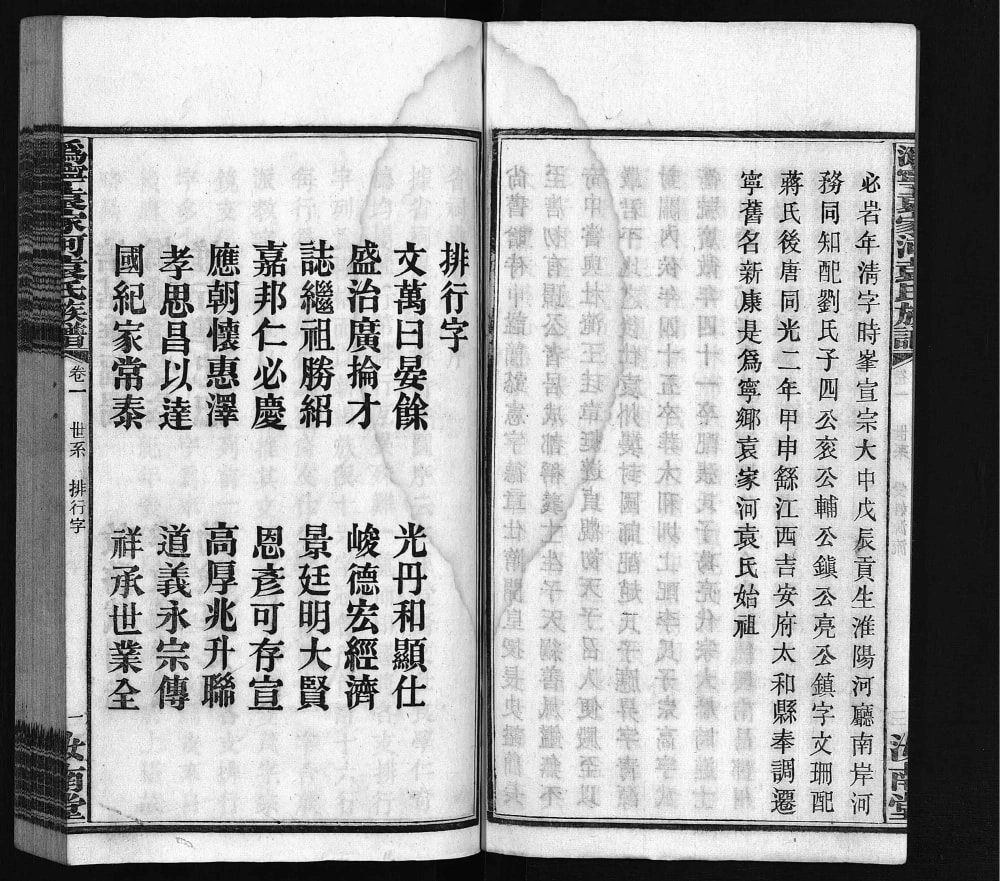 必岩年清字時峯宣宗大中戊辰貢生淮陽河廳南岸河
務同知配劉氏子四公衮公輔公鎮公亮公鎮字文珊配
蔣氏後唐同光二年甲申繇江西吉安府太和縣奉調遷
寧舊名新康是爲寧鄉袁家河袁氏始祖
排行字
文萬曰晏餘 光丹和顯仕
盛治廣掄才 峻德宏經濟
誌繼祖勝紹 景廷明大賢
嘉邦仁必慶 恩彥可存宣
應朝懷惠澤 高厚兆升聯
孝思昌以達 道義永宗傳
國紀家常泰 祥承世業全
爲寧袁家河袁氏族譜 卷一 世系 排行字 一 汝南堂